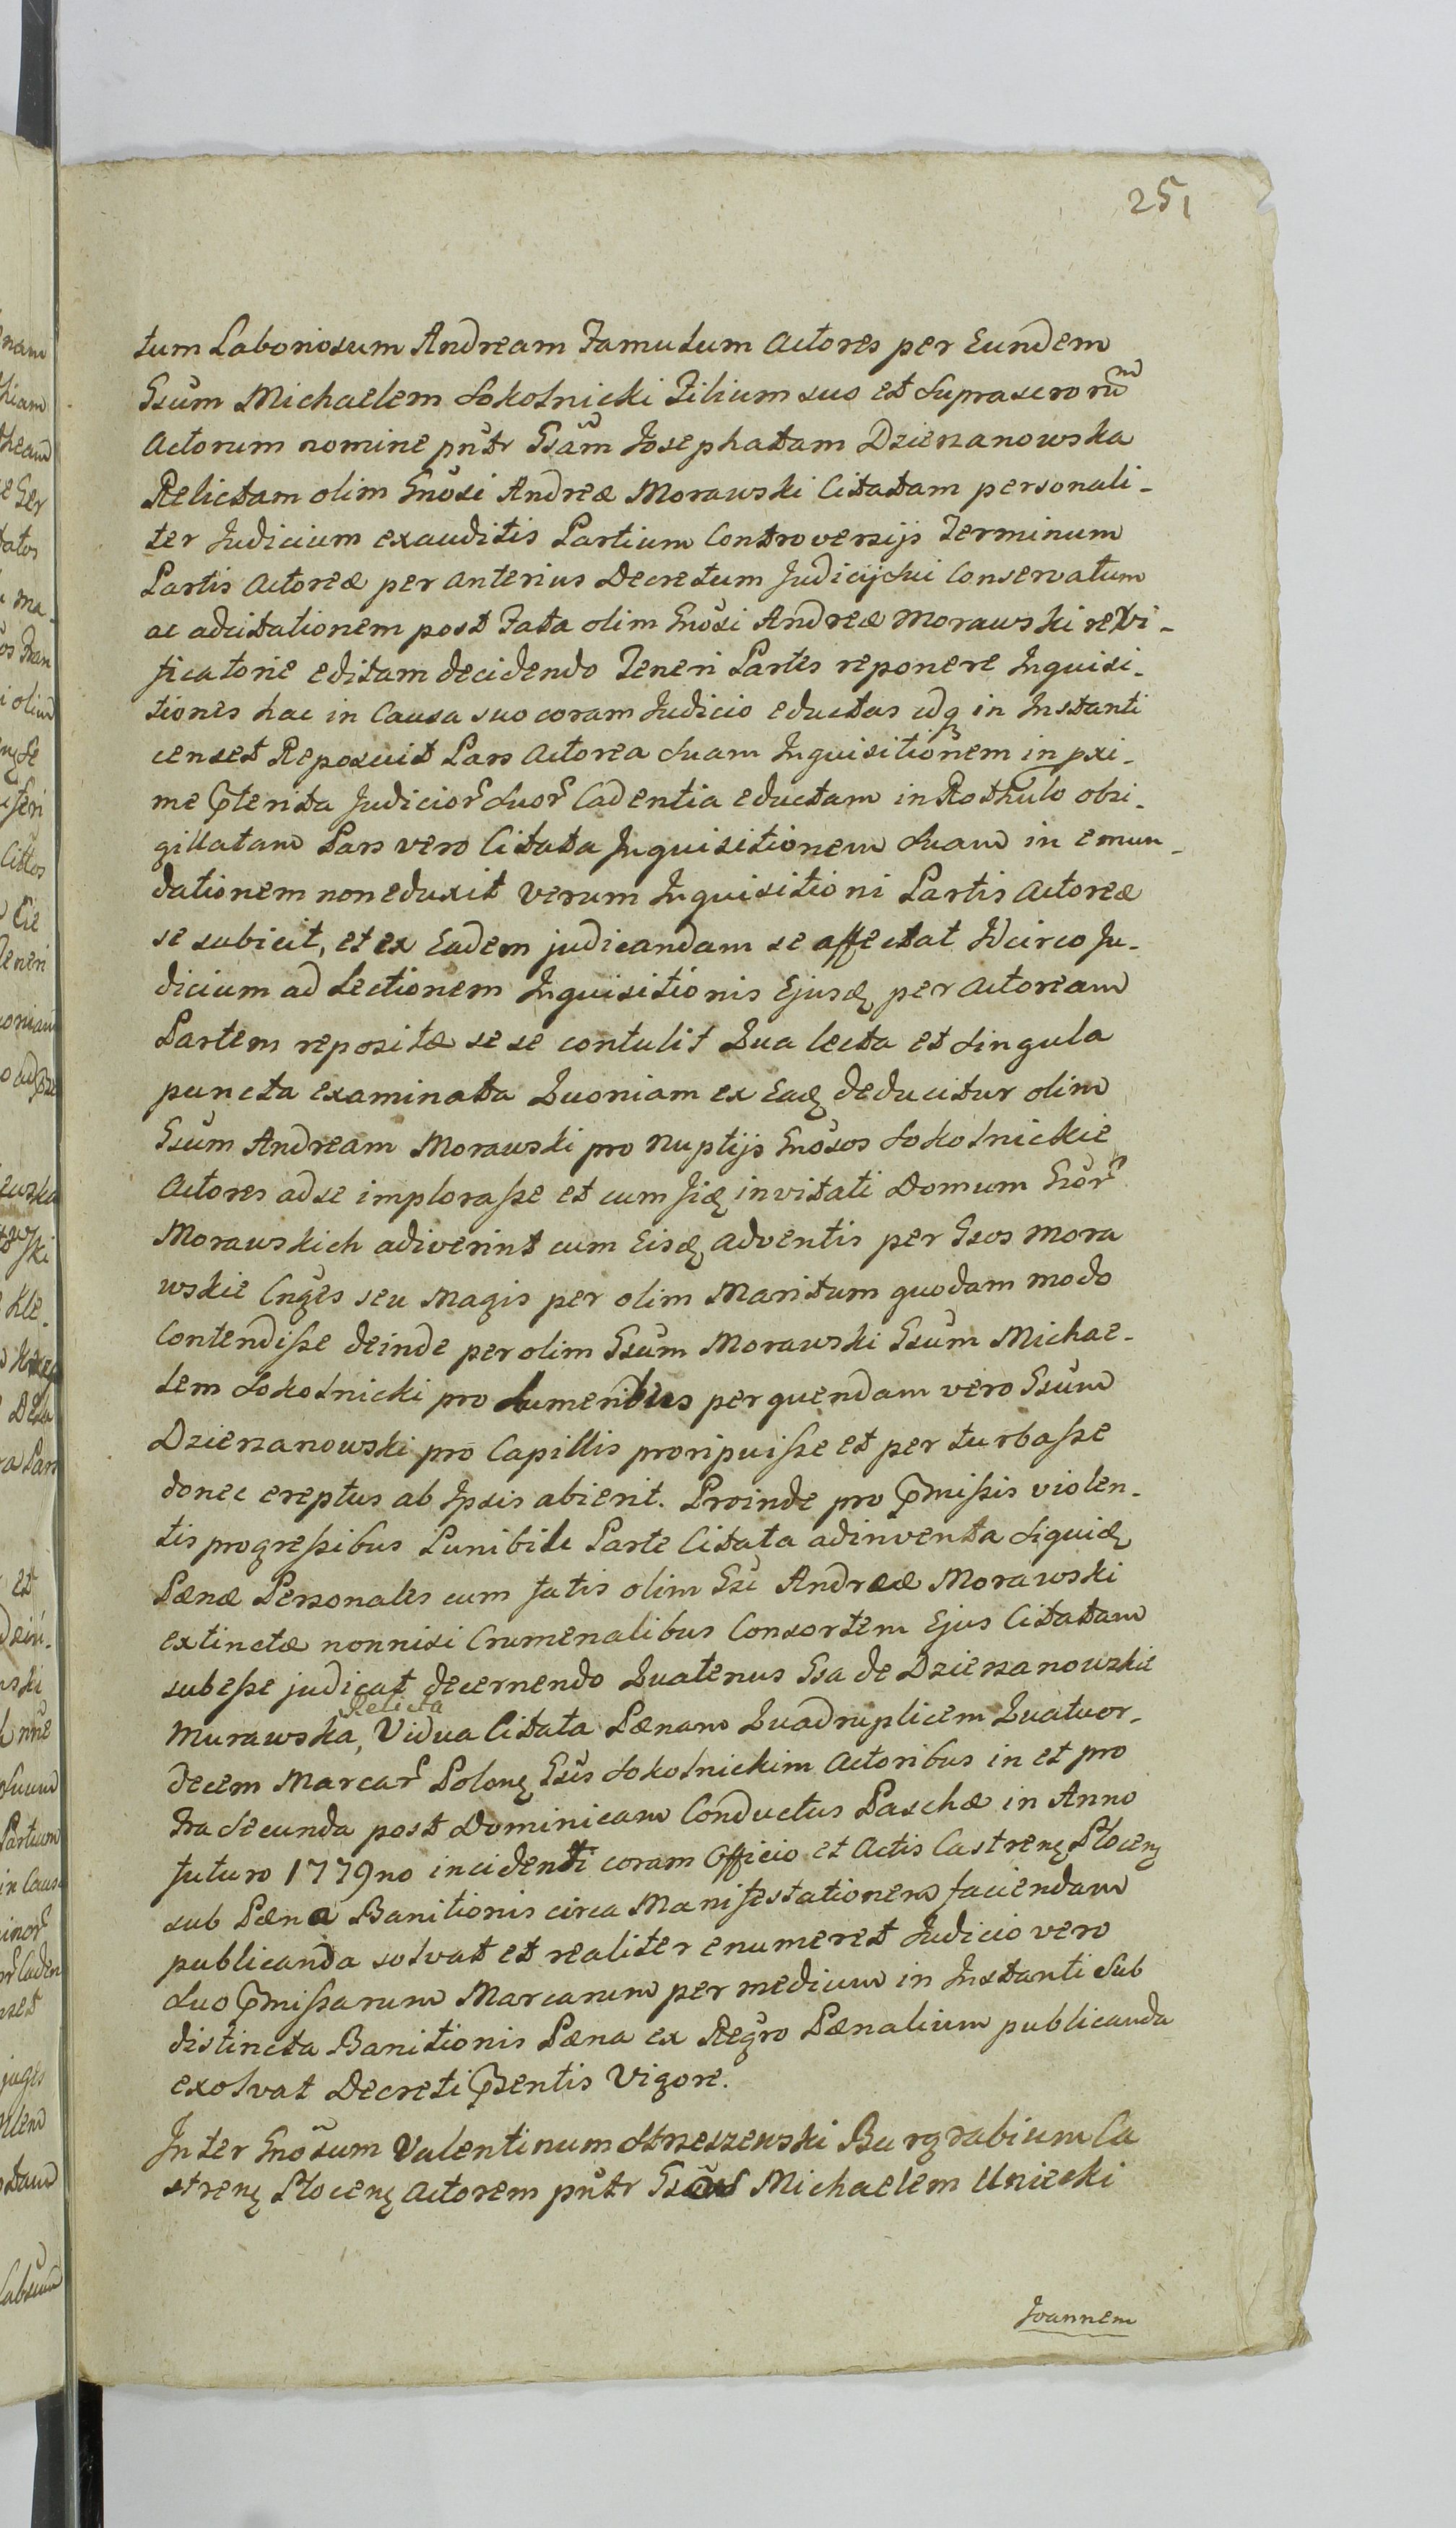 251
tum Laboriosum Andream Famulum Actores per Eundem
Gsum Michaelem Sokolnicki Filium suo et Suprascrorum
Actorum nomine pntr Gsam Josephatam Dzierzanowska
Relictam olim Gnosi Andreæ Morawski Citatam personali-
ter Judicium exauditis Partium Controversijs Terminum
Partis Actoreæ per anterius Decretum Judicij Sui Conservatum
ac adcitationem post Fata olim Gnosi Andreæ Morawski revi-
ficatorie editam decidendo Teneri Partes reponere Inquisi-
tiones hac in Causa suo coram Judicio eductas idq in Instanti
censet Reposuit Pars Actorea Suam Inquisitionem in pxi-
me Pterita Judicior Suor Cadentia eductam in Rothulo obsi-
gillatam Pars vero Citata Inquisitionem Suam in emun-
dationem non eduxit Verum Inquisitioni Partis Actoreæ
se subicit, et ex Eadem judicandam se affectat Idcirco Ju-
dicium ad Lectionem Inquisitionis Ejusd per Actoream
Partem repositæ se se contulit Qua lecta et Singula
puncta examinata Quoniam ex Ead deducitur olim
Gsum Andream Morawski pro Nuptijs Gnosos Sokolnickie
Actores ad se implorasse et cum Jid invitati Domum Gsor
Morawskich adiverint cum Eisd adventis per Gsos Mora
wskie Cnges seu Magis per olim Maritum quodam modo
Contendisse deinde per olim Gsum Morawski Gsum Michae-
lem Sokolnicki pro Lumeribus per quendam vero Gsum
Dzierzanowski pro Capillis proripuisse et perturbasse
donec ereptus ab Ipsis abierit. Proinde pro Pmissis violen-
tis progressibus Punibili Parte Citata adinventa Siquid
Pænæ Personales cum fatis olim Gsi Andreæ Morawski
extinctæ nonnisi Crumenalibus Consortem Ejus Citatam
subesse judicat decernendo Quatenus Gsa de Dzierzanowskie
Relicta
Murawska, Vidua Citata Pænam Quadruplicem Quatuor-
decem Marcar Polon Gsis Sokolnickim Actoribus in et pro
Fra Secunda post Dominicam Conductus Paschæ in Anno
futuro 1779no incidenti coram Officio et Actis Castren Plocen
sub Pæna Banitionis circa Manifestationem faciendam
publicanda solvat et realiter enumeret Judicio vero
Suo Pmissarum Marcarum per medium in Instanti Sub
distincta Banitionis Pæna ex Regro Pænalium publicanda
exolvat Decreti Psentis Vigore.
Inter Gnosum Valentinum Strzeszewski Burgrabium Ca
stren Plocen Actorem pntr Michaelem Unieski
Joannem